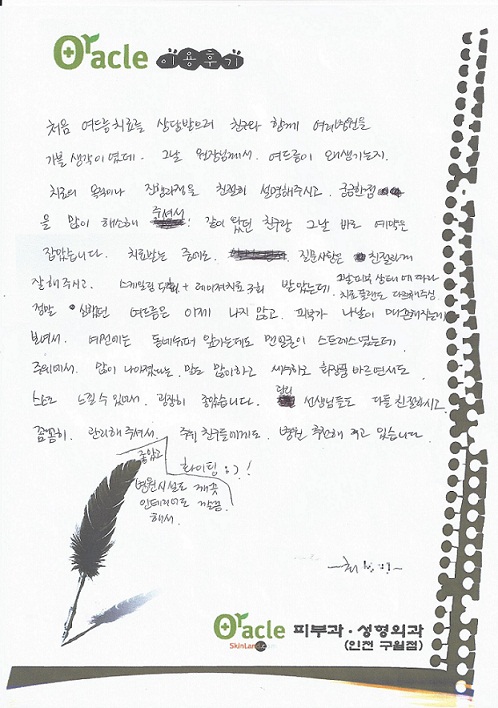 Oracle 이용후기
처음 여드름치료를 상담받으러 친구와 함께 여러병원을
가볼 생각이였는데. 그날 원장님께서. 여드름이 왜생기는지.
치료의 목적이나 진행과정을 친절히 설명해주시고. 궁금한점
을 많이 해소해 주셔서! 같이 왔던 친구랑 그날 바로 예약은
잡았습니다. 치료받는 중에도. 질문사항은 친절하게
잘해주시고. 스케일링 5회 + 레이저치료 3회 받았는데. 그날피부 상태에 따라
치료플랜도 다르게해주심.
정말 심했던 여드름은 이제 나지 않고. 피부가 나날이
보여서. 예전에는 동네슈퍼 앞가는데도 민얼굴이 스트레스였는데
주위에서. 많이 나아졌다는. 말도 많이하고 세수하고 화장품 바르면서도.
스스로 느낄 수 있어서. 굉장히 좋았습니다. 관리 선생님들도 다들 친절하시고
꼼꼼히. 관리해 주셔서. 주위 친구들에게도. 병원 추천해 주고 있습니다.
좋았고
병원시설도 깨끗
인테리어도 깔끔.
해서.
화이팅 :)!
Oracle 피부과·성형외과
(인천 구월점)